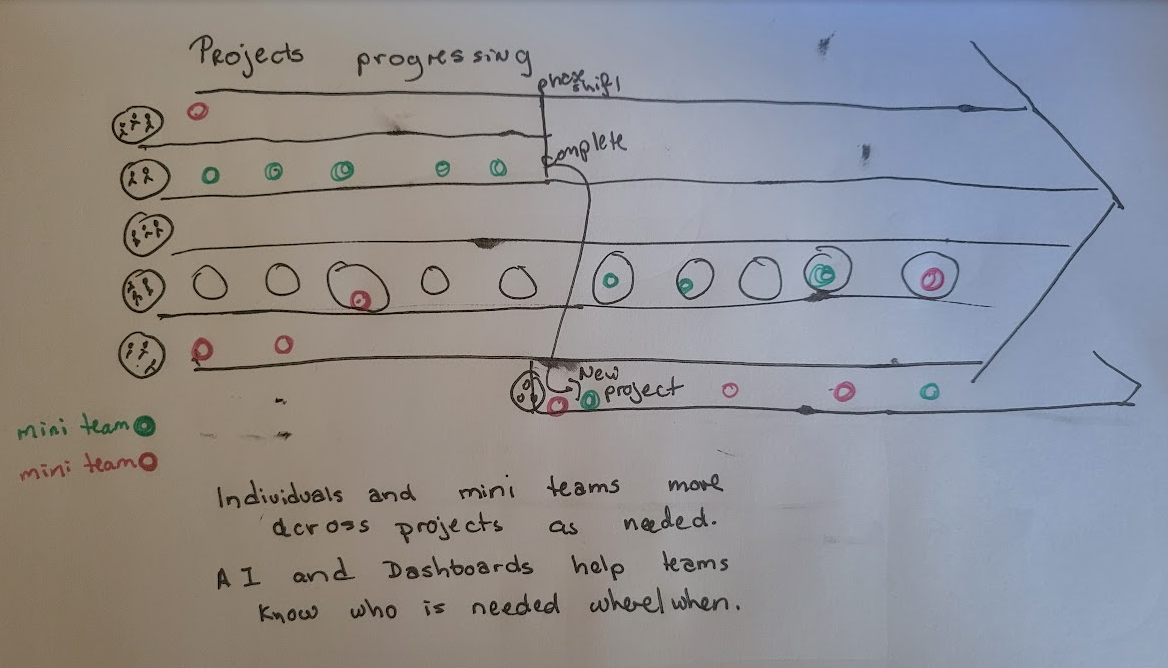 Projects progressing
phase shift
complete
New
project
mini team
mini team
Individuals and mini teams move
across projects as needed.
AI and Dashboards help teams
know who is needed where/when.